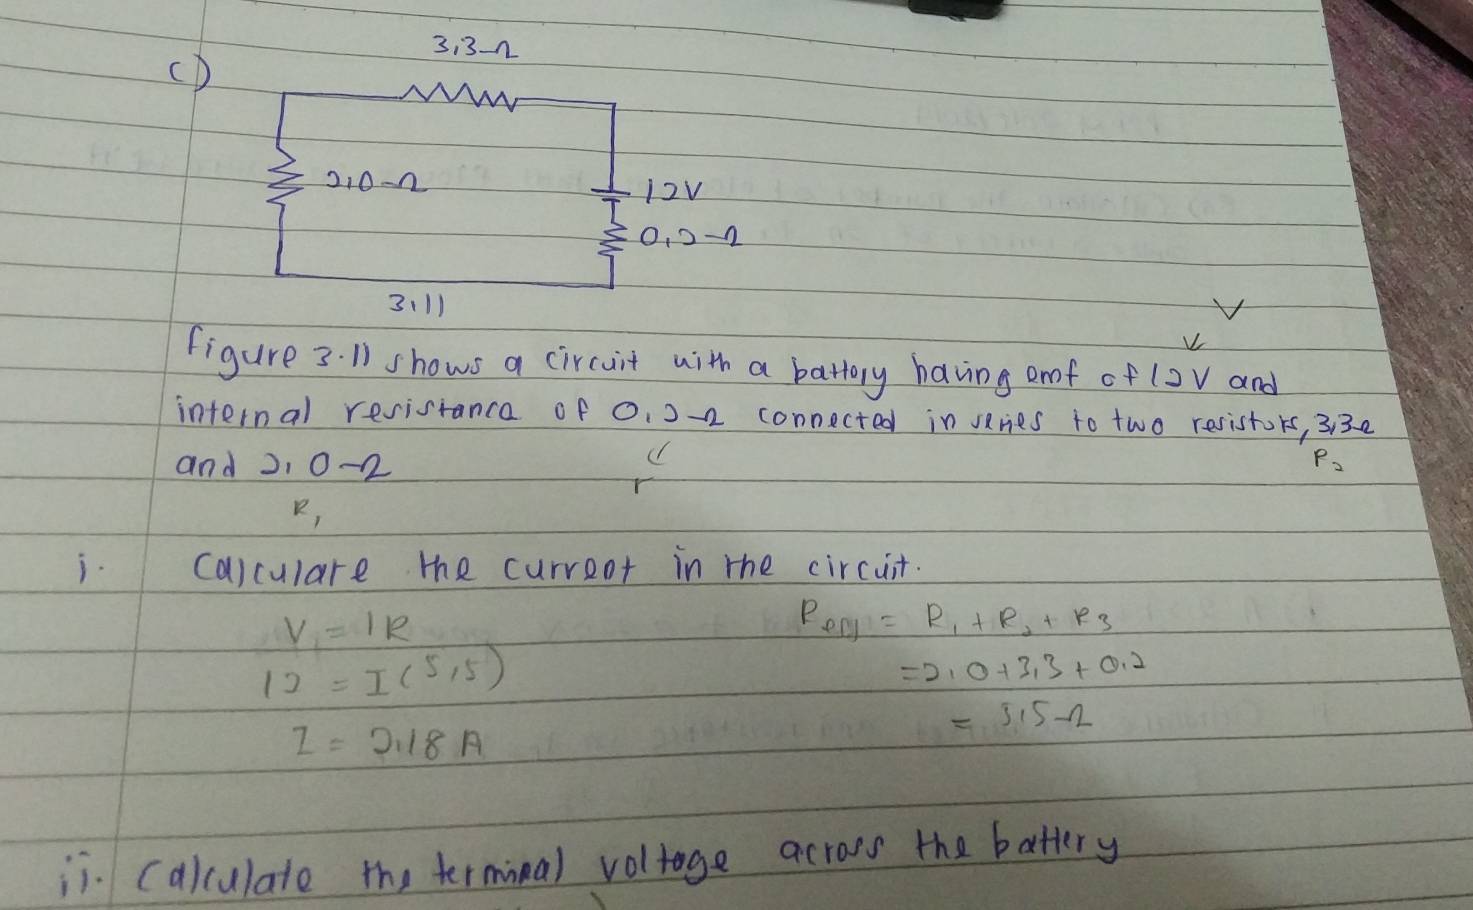 c)
3,3Ω
2,0Ω
12V
0,2Ω
3.11
figure 3.11 shows a circuit with a battery having emf of 12V and
internal resistance of 0,2Ω connected in series to two resistors, 3,3Ω
and 2,0Ω
r
R₂
R₁
i. Calculate the current in the circuit.
V = IR
12 = I(5,5)
I = 2.18 A
= R₁ + R₂ + R₃
= 2,0 + 3,3 + 0.2
= 5,5Ω
ii. Calculate the terminal voltage across the battery